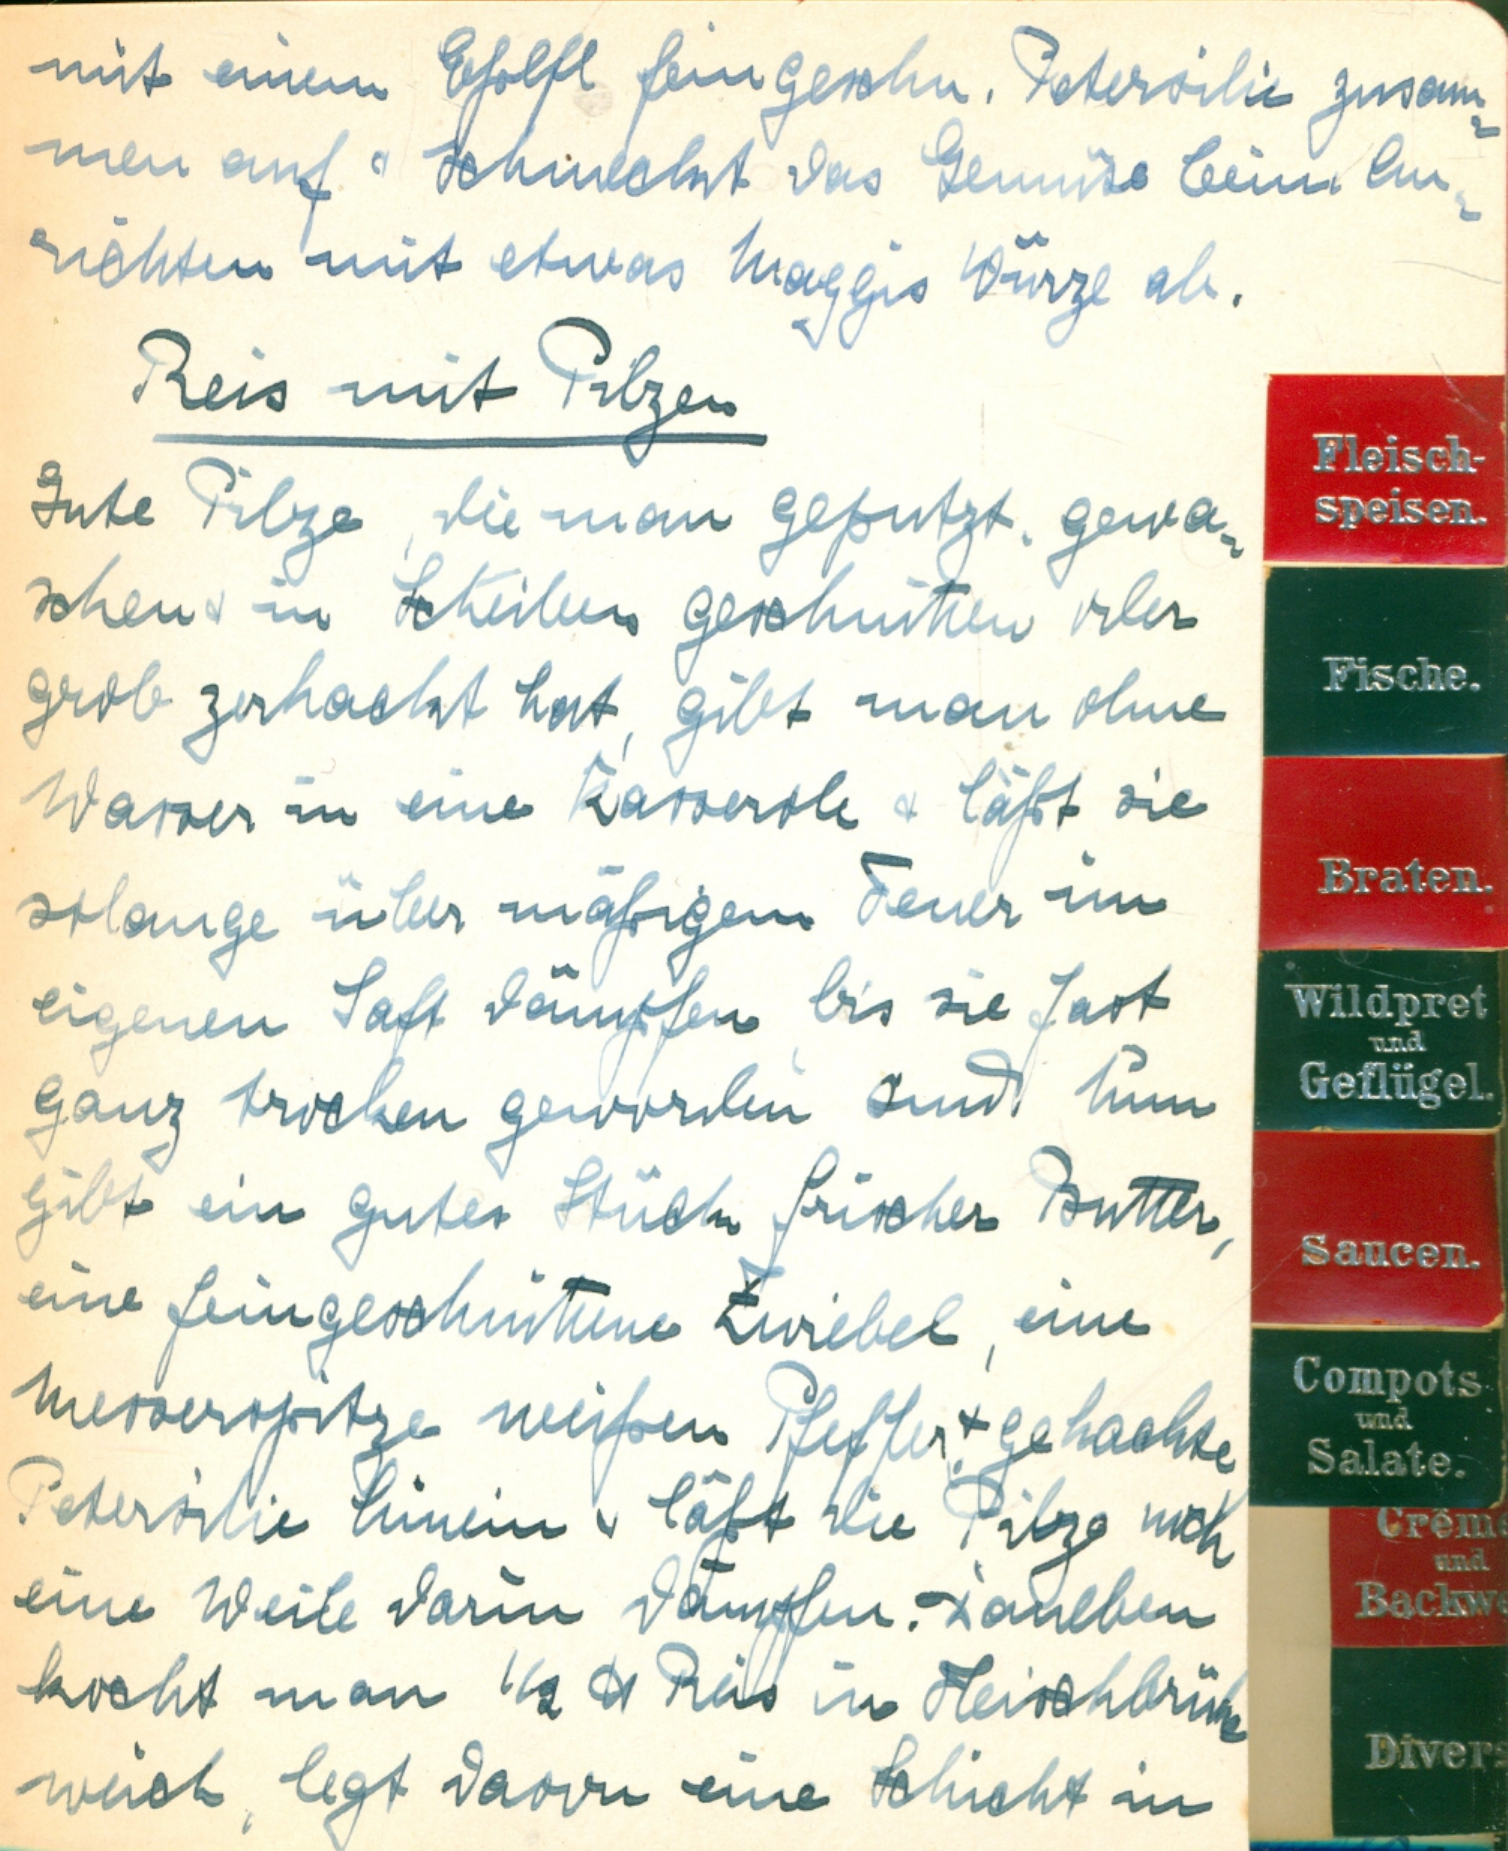 mit einem Eßlfl feingeschn. Petersilie zusam-
men auf & schmeckt das Gemüse beim An-
richten mit etwas Maggis Würze ab.
Reis mit Pilzen
Gute Pilze, die man geputzt, gewa-
schen & in Scheiben geschnitten oder
grob zerhackt hat, gibt man ohne
Wasser in eine Kasserole & läßt sie
solange über mäßigem Feuer im
eigenen Saft dämpfen, bis sie fast
ganz trocken geworden sind. Nun
gibt ein gutes Stück frischer Butter,
eine feingeschnittene Zwiebel, eine
Messerspitze weißen Pfeffer, & gehackte
Petersilie hinein & läßt die Pilze noch
eine Weile darin dämpfen.
kocht man 1/2 ℔ Reis in Fleischbrühe
weich, legt davon eine Schicht in
Fleisch-
speisen.
Fische.
Braten.
Wildpret
und
Geflügel.
Saucen.
Compots
und
Salate.
Crême
und
Backwe
Divers